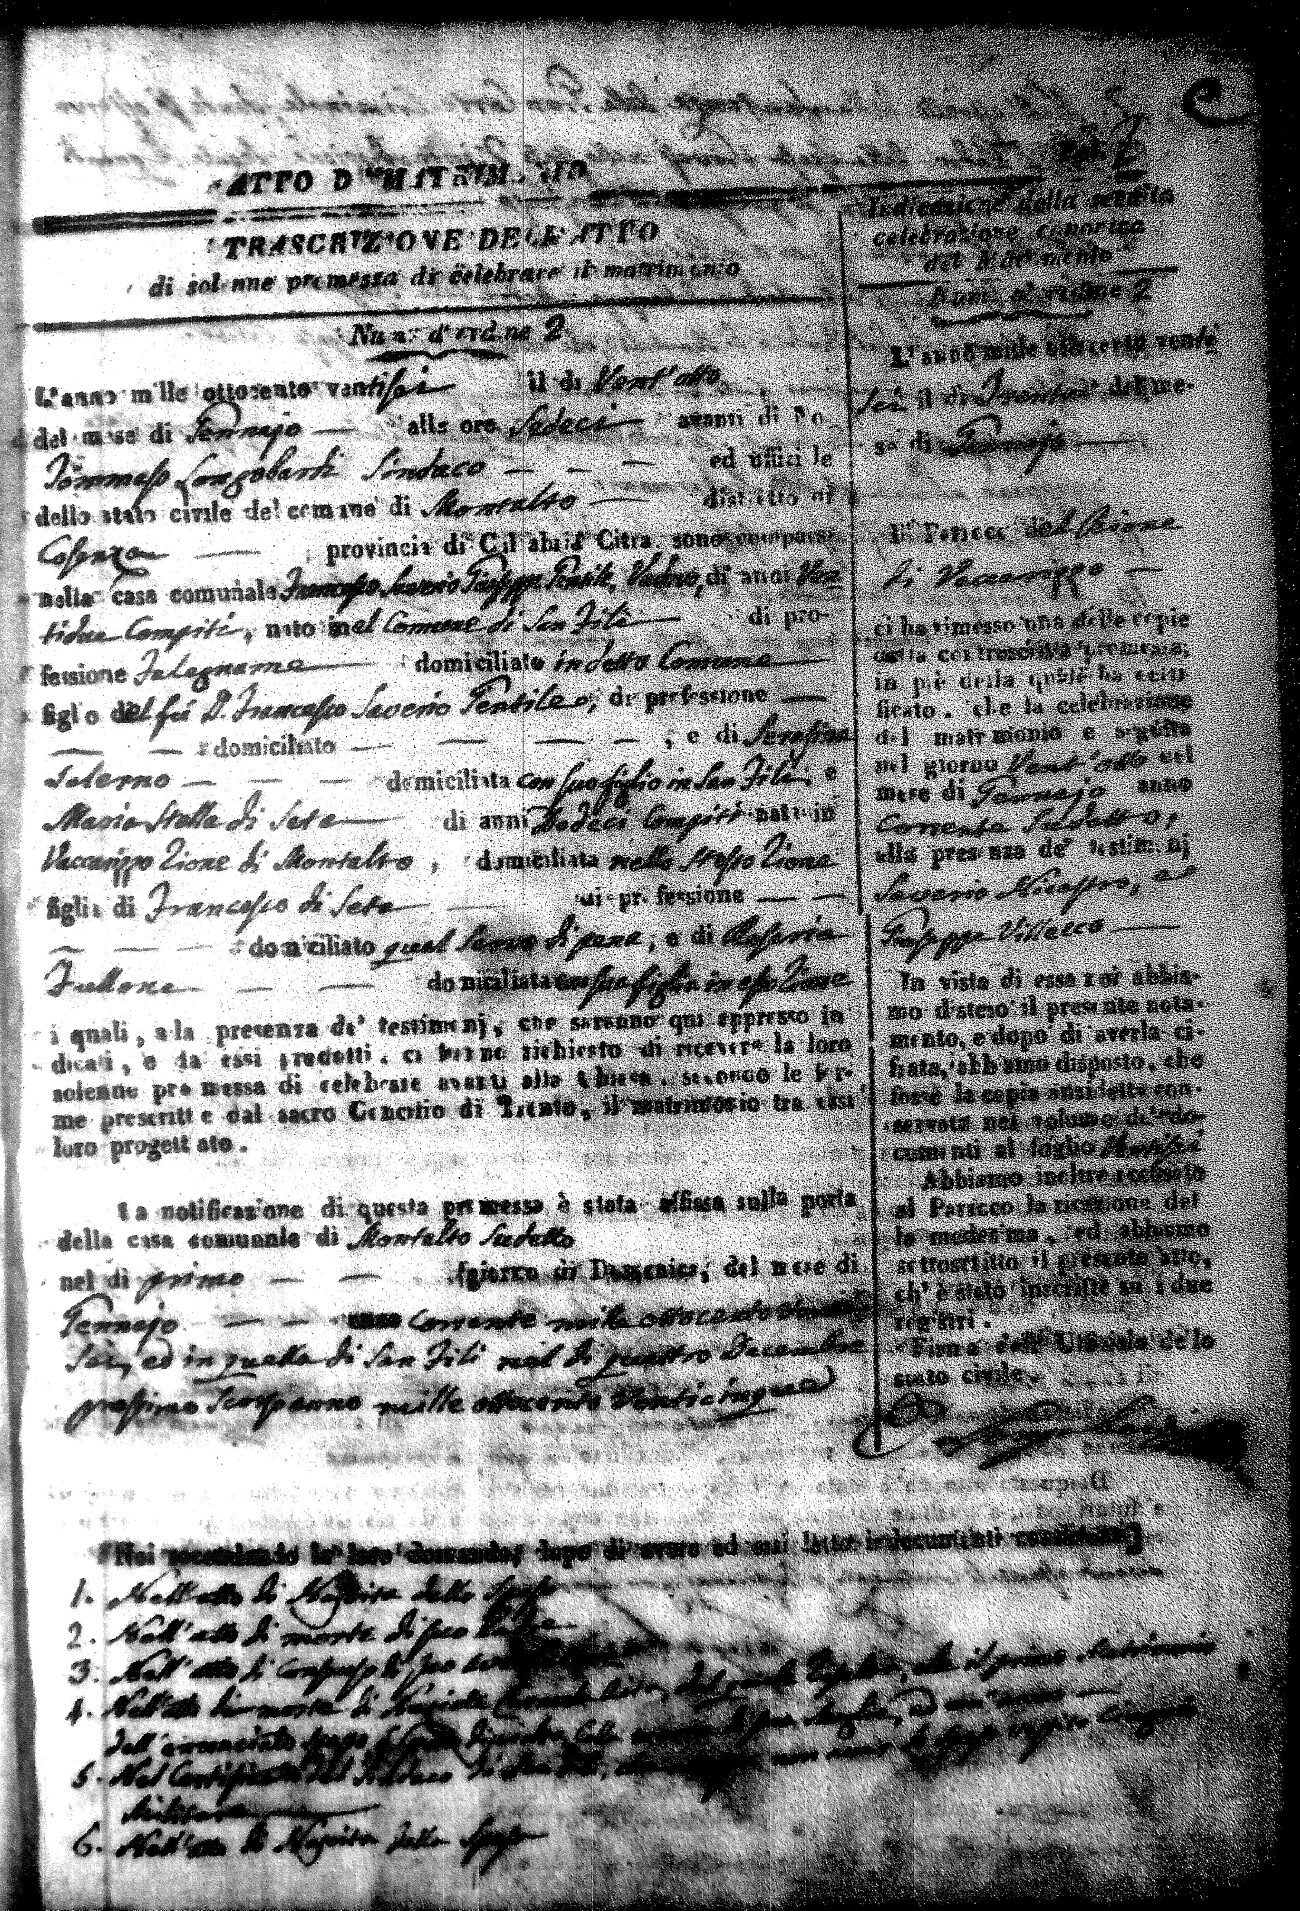 ATTO DI MATRIMONIO
TRASCRIZIONE DELL'ATTO
di solenne promessa di celebrare il matrimonio
Num. d'ordine 2
L'anno mille ottocento ventisei il di Vent'otto
del mese di Gennajo alle ore Sedeci avanti di No
Tommaso Longobardi Sindaco ed uffiziale
dello stato civile del comune di Montalto distretto di
Cosenza provincia di Calabria Citra, sono comparsi
nella casa comunale Francesco Saverio Giuseppe Gentile, Vedovo, di anni Ven
tidue Compiti, nato nel Comune di San Fili di pro-
fessione Falegname domiciliato in detto Comune
figlio del fu D. Francesco Saverio Gentile, di professione
domiciliato , e di Serafina
Salerno domiciliata con suo figlio in San Fili, e
Maria Stella di Seta di anni Dodeci Compiti nata in
Vaccarizzo Rione di Montalto, domiciliata nello stesso Rione
figlia di Francesco di Seta di professione
domiciliato qual Servo di pena, e di Rosaria
Fullone domiciliata con sua figlia in esso Rione
i quali, alla presenza de' testimonj, che saranno qui appresso in
dicati, e da essi prodotti, ci hanno richiesto di ricevere la loro
solenne promessa di celebrare avanti alla Chiesa, secondo le for-
me prescritte dal sacro Concilio di Trento, il matrimonio tra essi
loro progettato.
La notificazione di questa promessa è stata affissa sulla porta
della casa comunale di Montalto sudetto
nel di primo giorno di Domenica, del mese di
Gennajo corrente mille ottocento venti
sei, ed in quella di San Fili nel di quattro Decembre
prossimo scorso anno mille ottocento venticinque
Noi secondando le loro domande, dopo di avere ad essi letto i documenti consistenti
1. Nell'atto di Nascita dello Sposo
2. Nell'atto di morte di suo Padre
3. Nell'atto di Consenso di sua
4. Nell'atto di morte di che il primo Matrimonio
dell'enunciato Sposo
5. Nel Certificato del Sindaco di San Fili,
Militare
6. Nell'atto di Nascita della Sposa
Num. 2
Indicazione della seguita
celebrazione canonica
del Matrimonio
Num. d'ordine 2
L'anno mille ottocento venti
sei il di Trenta del me-
se di Gennajo
Il Parroco del Rione
di Vaccarizzo
ci ha rimesso una delle copie
della controscritta promessa;
in piè della quale ha certi-
ficato, che la celebrazione
del matrimonio è seguita
nel giorno Vent'otto del
mese di Gennajo anno
corrente sudetto,
alla presenza de' testimonj
Saverio Maestro, e
Giuseppe Villacco
In vista di essa noi abbia-
mo disteso il presente nota-
mento, e dopo di averla ci-
frata, abbiamo disposto, che
fosse la copia anzidetta con-
servata nel volume de' do-
cumenti al foglio Ventisei
Abbiamo inoltre accusato
al Parroco la ricezione del
la medesima, ed abbiamo
sottoscritto il presente atto,
ch'è stato inscritto su i due
registri.
Firma dell'Uffiziale dello
stato civile.